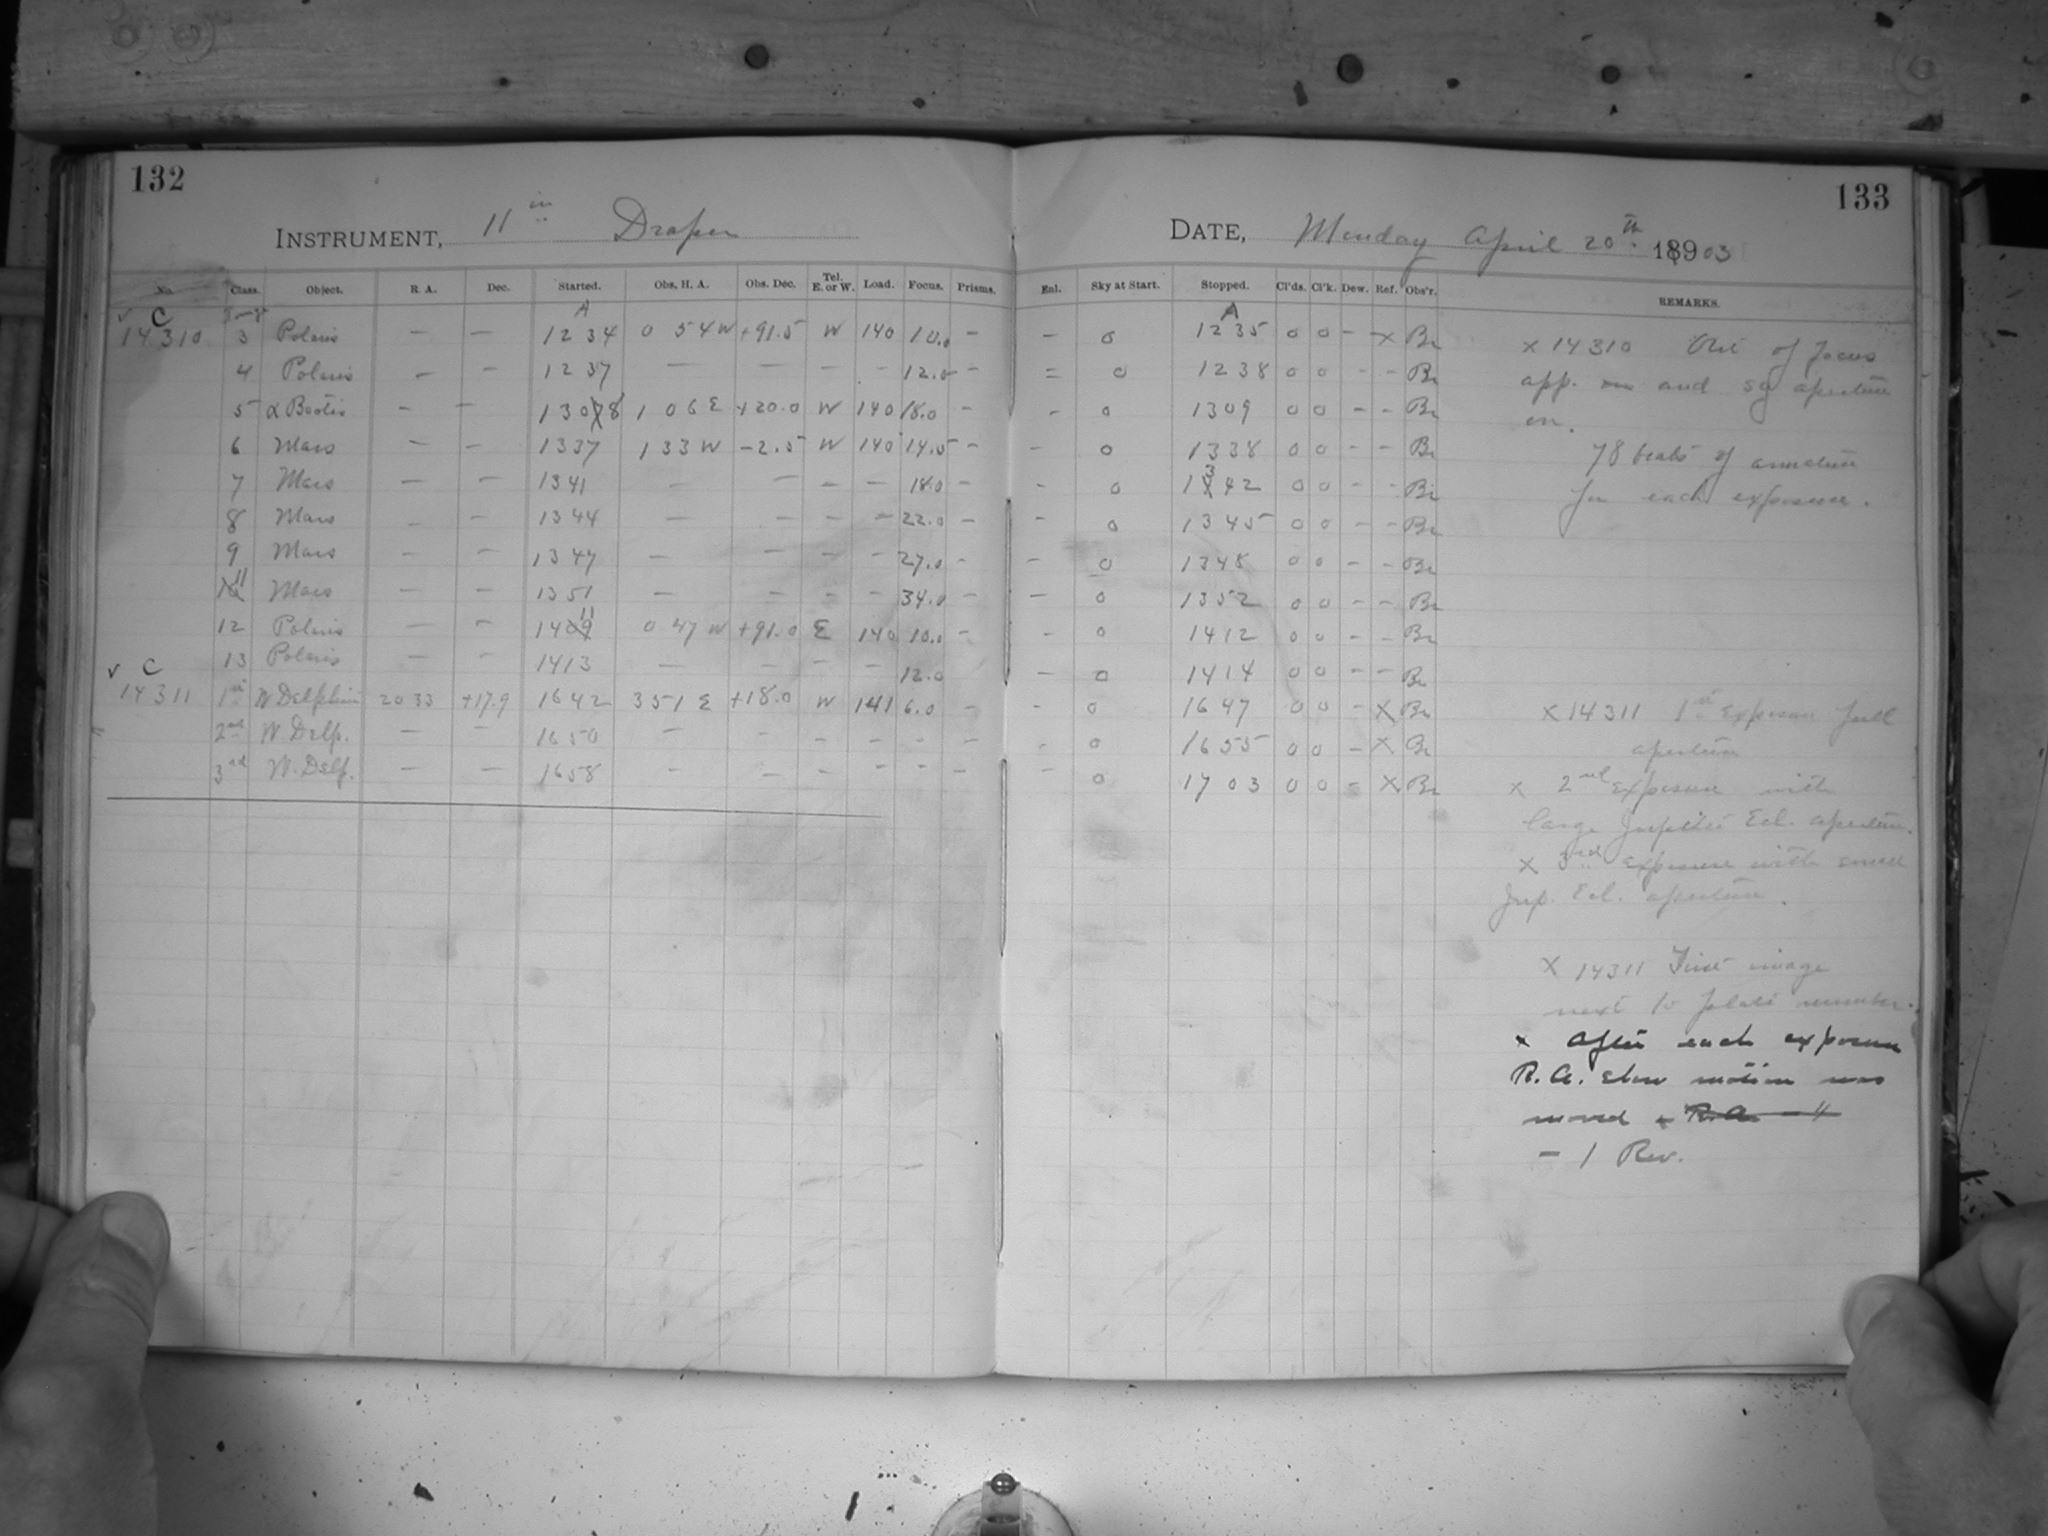 132
133
INSTRUMENT, 11 in Draper
DATE, Monday April 20th 1903
No. Class. Object. R. A. Dec. Started. Obs. H. A. Obs. Dec. Tel. E. or W. Load. Focus. Prisms. Enl. Sky at Start. Stopped. Cl'ds. Cl'k. Dew. Ref. Obs'r. REMARKS.
C A A
14310 3 Polaris — — 12 34 0 54 W +91.5 W 140 10.0 — — 0 12 35 0 0 — X Br
4 Polaris — — 12 37 — — — — 12.0 — = 0 12 38 0 0 — — Br
5 α Bootis — — 1308 1 06 E +20.0 W 140 18.0 — — 0 1309 0 0 — — Br
6 Mars — — 1337 1 33 W -2.5 W 140 14.5 — — 0 1338 0 0 — — Br
7 Mars — — 1341 — — — — 18.0 — — 0 1342 0 0 — — Br
8 Mars — — 1344 — — — — 22.0 — — 0 1345 0 0 — — Br
9 Mars — — 1347 — — — — 27.0 — — 0 1348 0 0 — — Br
11 Mars — — 1351 — — — — 34.0 — — 0 1352 0 0 — — Br
12 Polaris — — 1411 0 47 W +91.0 E 140 10.0 — — 0 1412 0 0 — — Br
13 Polaris — — 1413 — — — — 12.0 — 0 1414 0 0 — — Br
C
14311 1st W Delphini 20 33 +17.9 1642 3 51 E +18.0 W 141 6.0 — — 0 1647 0 0 — X Br
2nd W. Delp. — — 1650 — — — — — — - 0 1655 0 0 — X Br
3rd W. Delp. — — 1658 — — — — — — — 0 1703 0 0 — X Br
x 14310 Out of focus
app. and sq aperture
on.
78 beats of armature
for each exposure.
X 14311 1st exposure full
aperture
x 2nd exposure with
large Jupiter Ecl. aperture.
x 3rd exposure with small
Jup. Ecl. aperture.
X 14311 First image
next to plate number.
x After each exposure
R. A. slow motion was
moved
— 1 Rev.